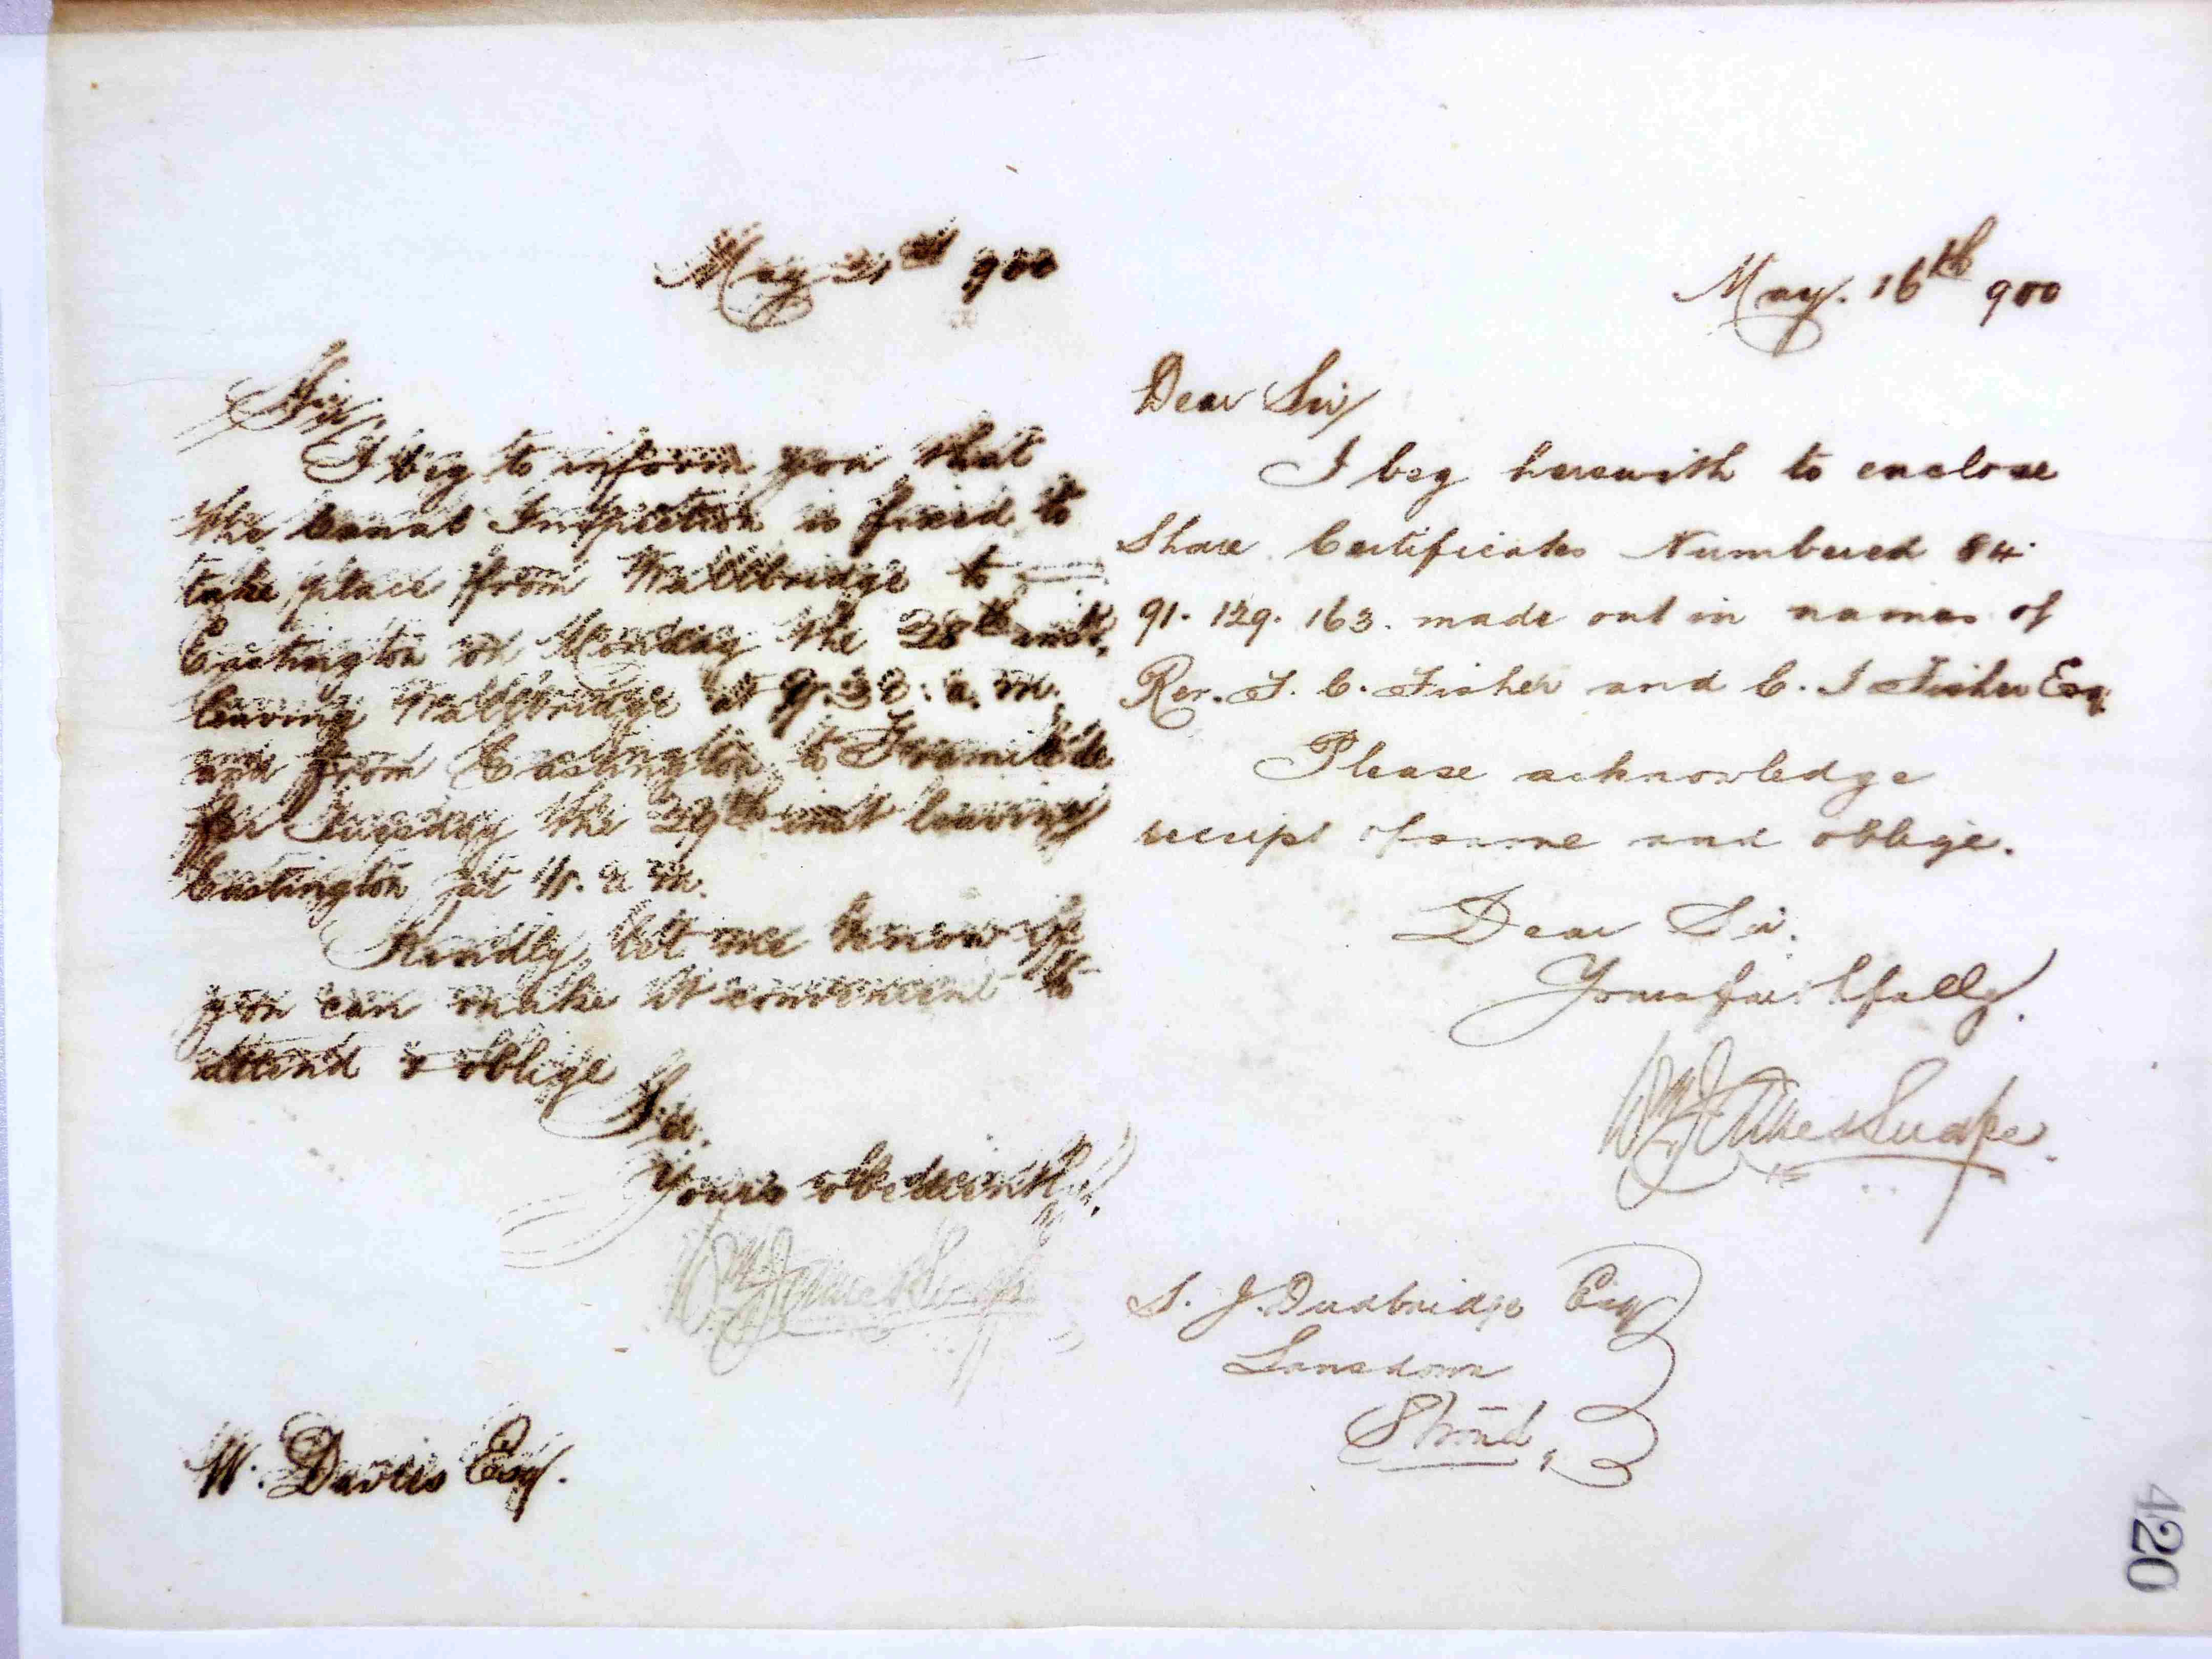 May 21st 900
Sir,
I beg to inform you that
the Canal Inspection is fixed to
take place from Wallbridge to
Eastington on Monday the 28th inst,
leaving Wallbridge at 9.30. a. m.
and from Eastington to Framilode
for Tuesday the 29th inst leaving
Eastington at 11. a m.
Kindly let me know if
you can make it convenient to
attend & oblige
Sir.
Yours obediently,
W. Davies Esq.
May. 16th 900
Dear Sir,
I beg herewith to enclose
Share Certificates Numbered 84.
91. 129. 163. made out in names of
Rev. F. C. Fisher and C. I Fisher Esq.
Please acknowledge
receipt of same and oblige.
Dear Sir.
Yours faithfully.
S. J. Dudbridge Esq
Lansdown
Stroud.
420